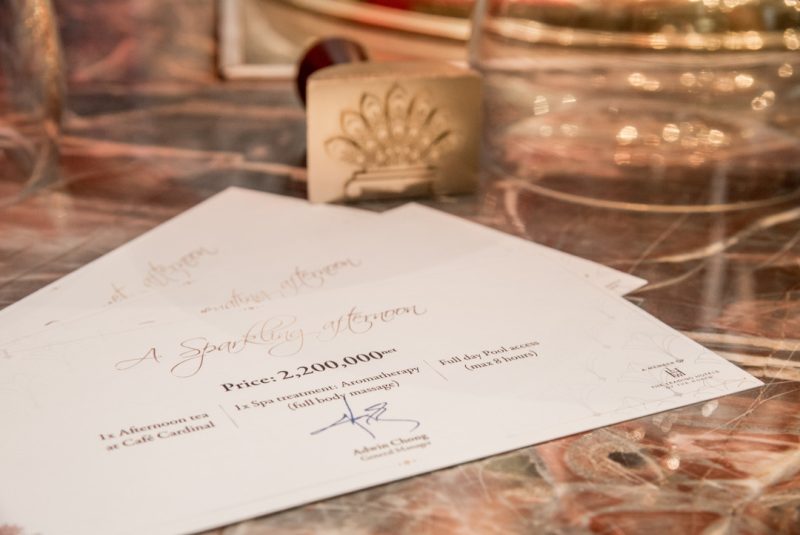 A Sparkling afternoon
Price: 2,200,000net
1x Afternoon tea
at Café Cardinal
1x Spa treatment: Aromatherapy
(full body massage)
Full day Pool access
(max 8 hours)
Adwin Chong
General Manager
A MEMBER OF
THE LEADING HOTELS
OF THE WORLD
afternoon
afternoon